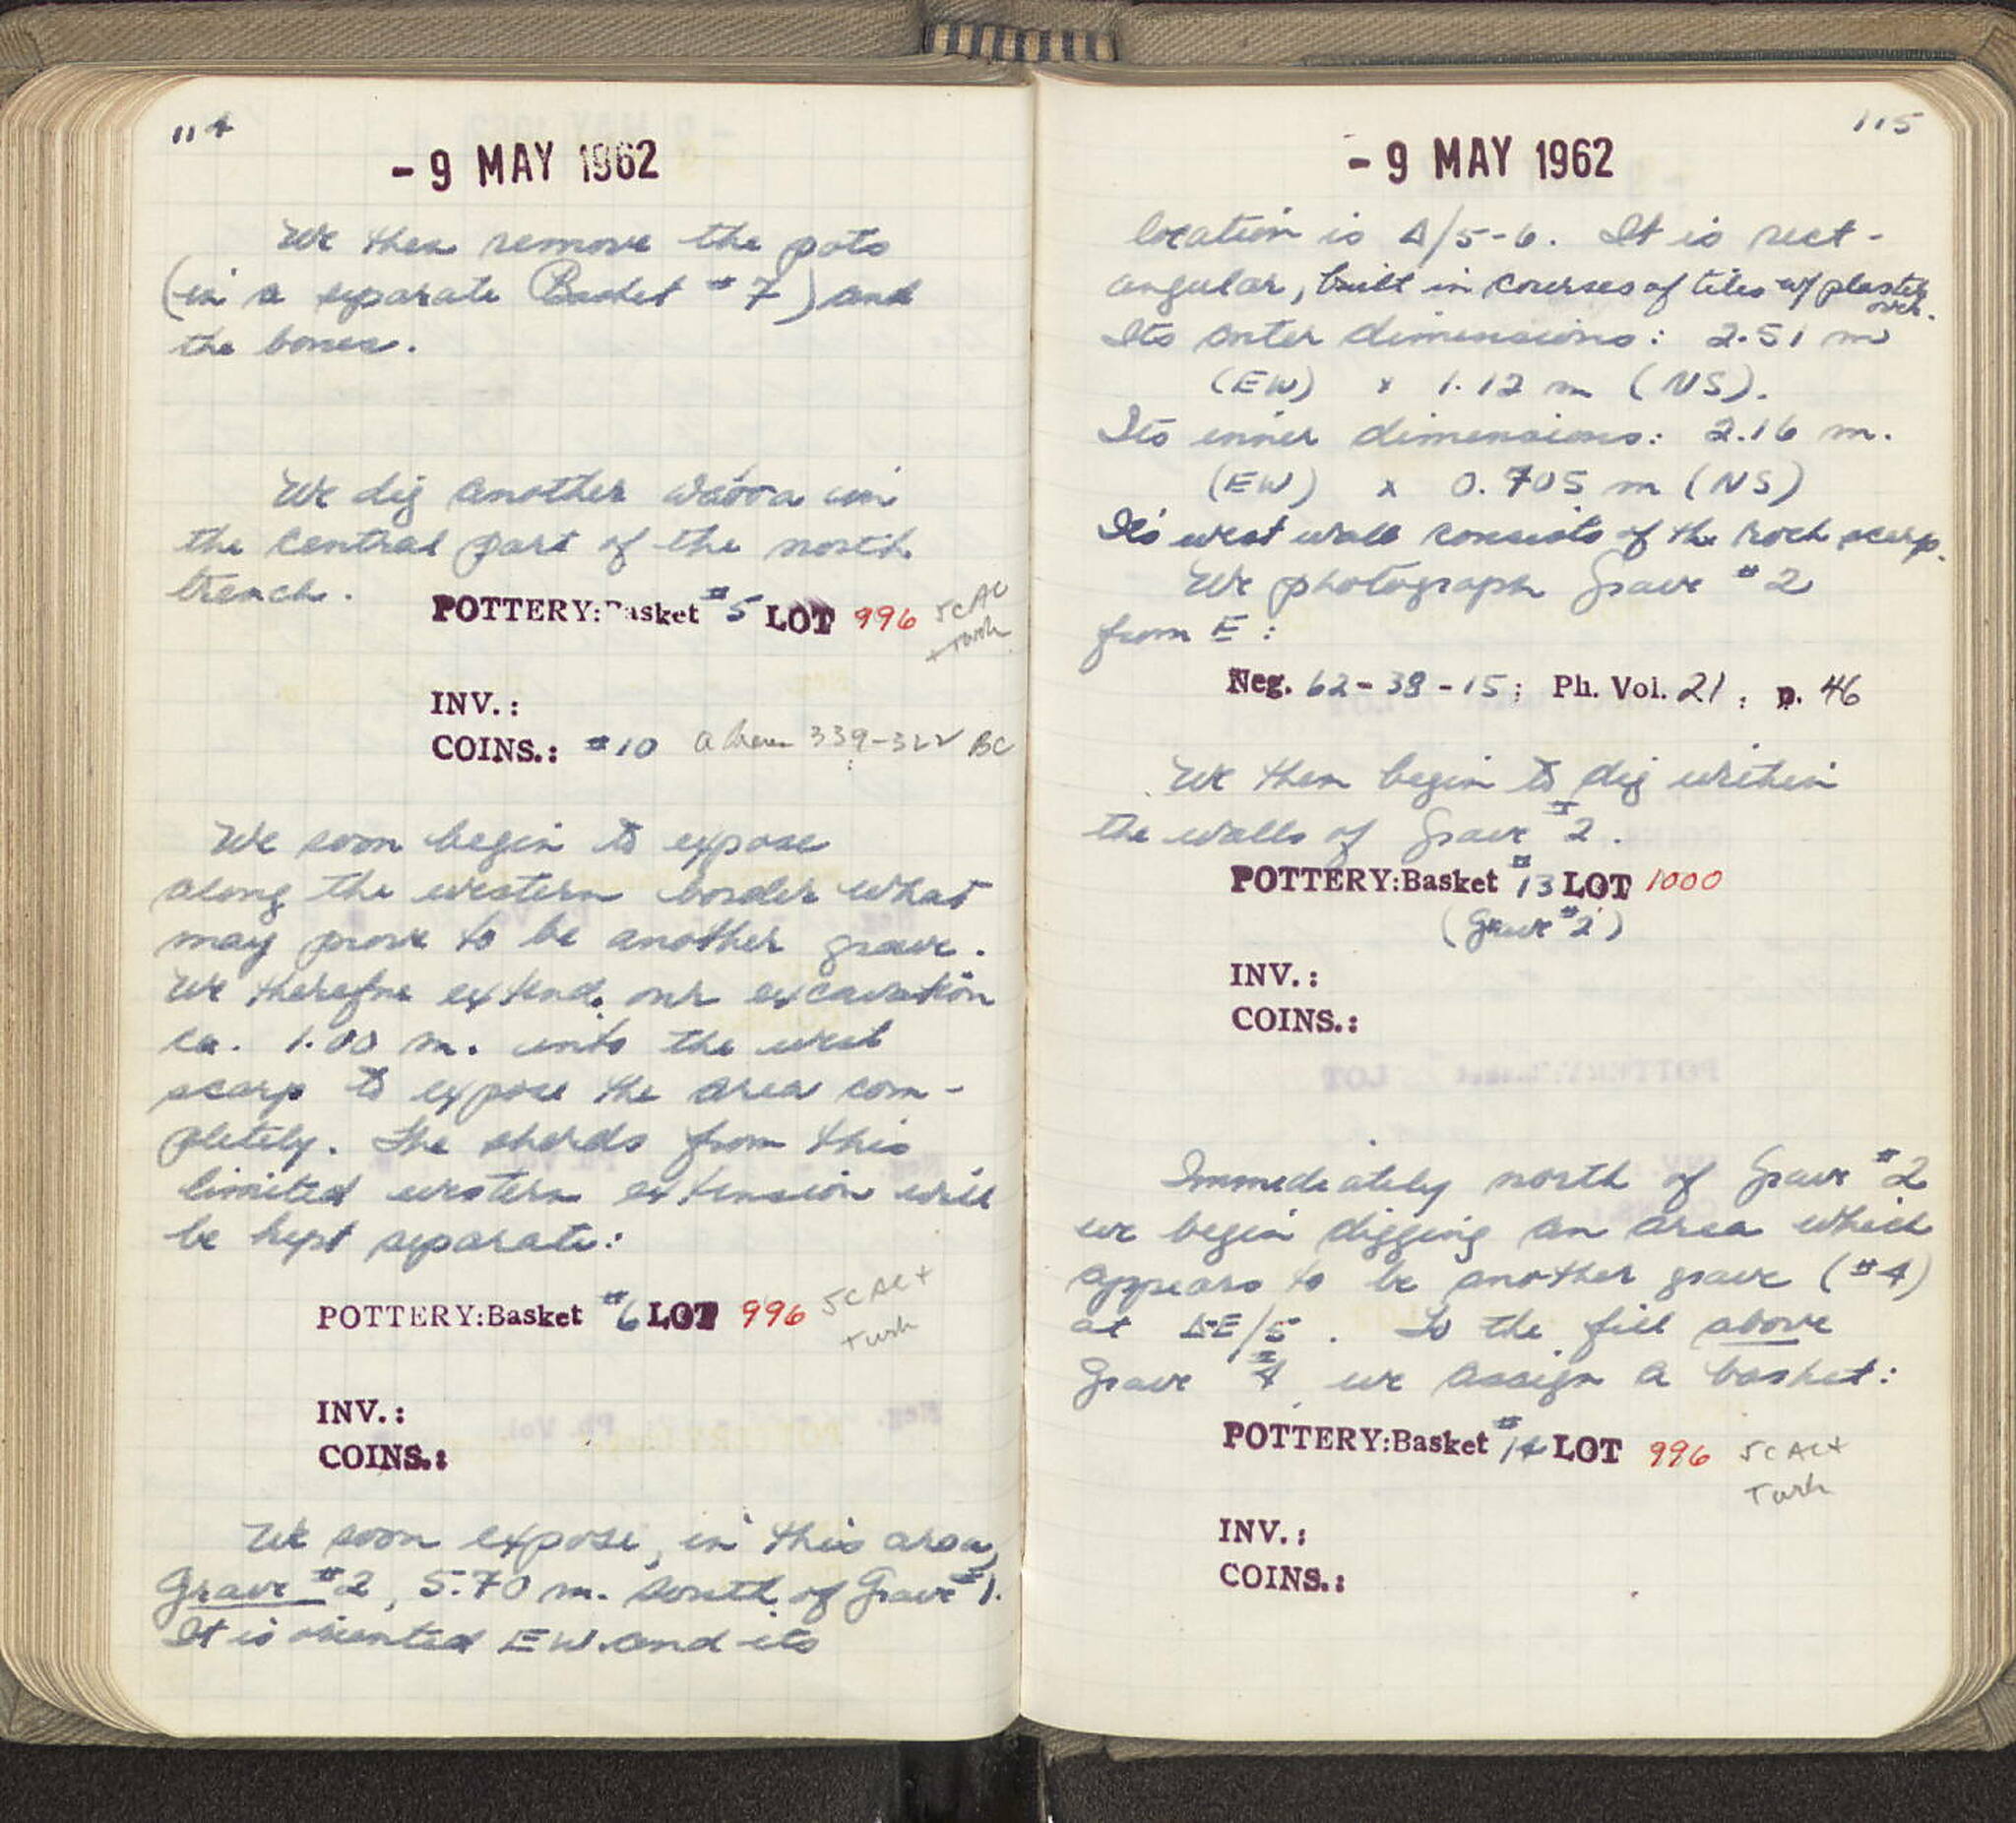 114
- 9 MAY 1962
We then remove the pots
(in a separate Basket #7) and
the bones.
We dig another πάσσα in
the central part of the north
trench.
POTTERY: Basket #5 LOT 996 5c AC
+ Turk
INV.:
COINS.: #10 339-322 BC
We soon begin to expose
along the western border what
may prove to be another grave.
We therefore extend our excavation
ca. 1.00 m. into the west
scarp to expose the area com-
pletely. The sherds from this
limited western extension will
be kept separate:
POTTERY:Basket #6 LOT 996 5c AC +
Turk
INV.:
COINS.:
We soon expose, in this area,
Grave #2, 5.70 m. south of Grave #1.
It is oriented EW. and its
115
- 9 MAY 1962
location is Δ/5-6. It is rect-
angular, built in courses of tiles w/ plaster
over.
Its outer dimensions: 2.51 m
(EW) x 1.12 m (NS).
Its inner dimensions: 2.16 m.
(EW) x 0.705 m (NS)
Its west wall consists of the rock scarp.
We photograph Grave #2
from E:
Neg. 62-38-15; Ph. Vol. 21, p. 46
We then begin to dig within
the walls of Grave #2.
POTTERY:Basket #13 LOT 1000
(Grave #2)
INV.:
COINS.:
Immediately north of Grave #2
we begin digging an area which
appears to be another grave (#4)
at ΔE/5. To the fill above
Grave #4 we assign a basket:
POTTERY:Basket #14 LOT 996 5c AC +
Turk
INV.:
COINS.: